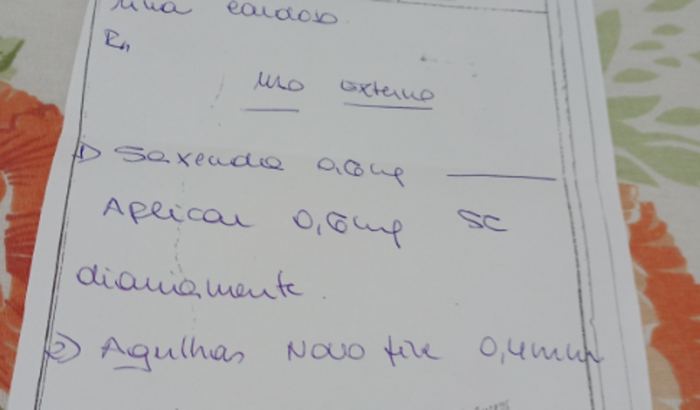 Cardoso
Rp
Uso externo
1) Saxenda 0,6mg
Aplicar 0,6mg SC
diariamente.
2) Agulhas Novo fine 0,4mm